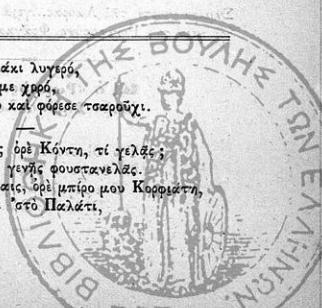 άκι λυγερό,
με χορό,
καὶ φόρεσε τσαροῦχι.
ὀρὲ Κόντη, τί γελᾷς ;
γενῇς φουστανελᾶς.
αις, ὀρὲ μπίρο μου Κορφιάτη,
'στὸ Παλάτι,
ΒΙΒΛΙΟΘΗΚΗ ΤΗΣ ΒΟΥΛΗΣ ΤΩΝ ΕΛΛΗΝΩΝ